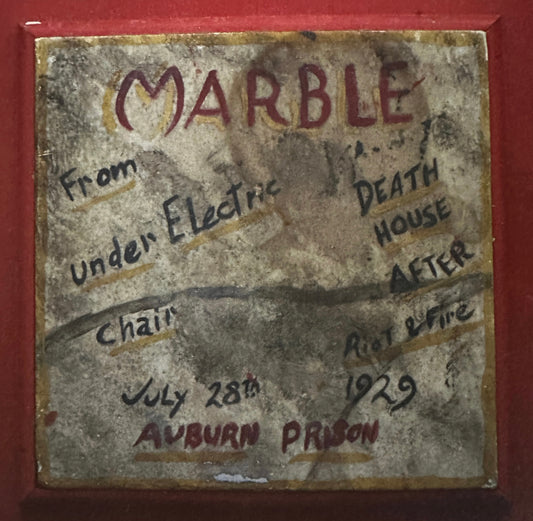 MARBLE
From
under Electric
Chair
DEATH
HOUSE
AFTER
Riot & Fire
July 28th 1929
AUBURN PRISON